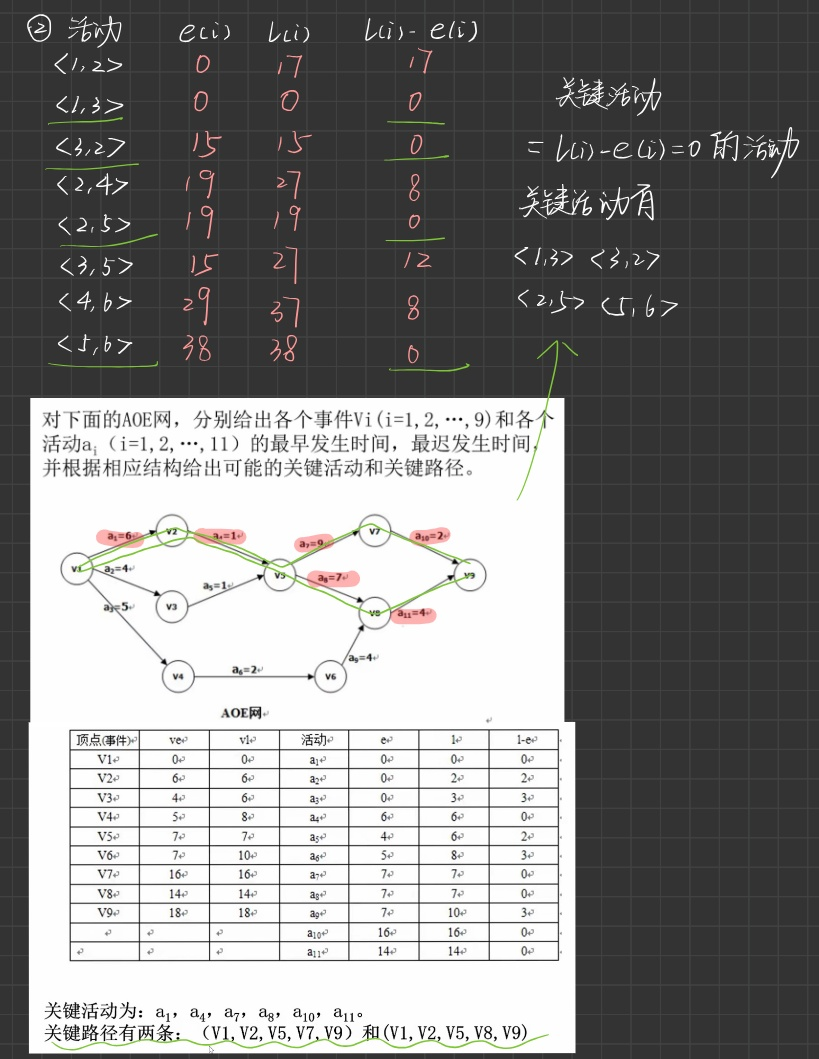 ② 活动 e(i) l(i) l(i)-e(i)
<1,2> 0 17 17
<1,3> 0 0 0
<3,2> 15 15 0
<2,4> 19 27 8
<2,5> 19 19 0
<3,5> 15 27 12
<4,6> 29 37 8
<5,6> 38 38 0
关键活动
= l(i)-e(i)=0 的活动
关键活动有
<1,3> <3,2>
<2,5> <5,6>
对下面的AOE网，分别给出各个事件Vi(i=1,2,…,9)和各个
活动aᵢ（i=1,2,…,11）的最早发生时间，最迟发生时间，
并根据相应结构给出可能的关键活动和关键路径。
a₁=6 V2 a₄=1 a₇=9 V7 a₁₀=2
V1 a₂=4 a₅=1 V5 a₈=7 V9
a₃=5 V3 V8 a₁₁=4
V4 a₆=2 V6 a₉=4
AOE网
顶点(事件) ve vl 活动 e l l-e
V1 0 0 a₁ 0 0 0
V2 6 6 a₂ 0 2 2
V3 4 6 a₃ 0 3 3
V4 5 8 a₄ 6 6 0
V5 7 7 a₅ 4 6 2
V6 7 10 a₆ 5 8 3
V7 16 16 a₇ 7 7 0
V8 14 14 a₈ 7 7 0
V9 18 18 a₉ 7 10 3
a₁₀ 16 16 0
a₁₁ 14 14 0
关键活动为：a₁，a₄，a₇，a₈，a₁₀，a₁₁。
关键路径有两条：（V1,V2,V5,V7,V9）和(V1,V2,V5,V8,V9)